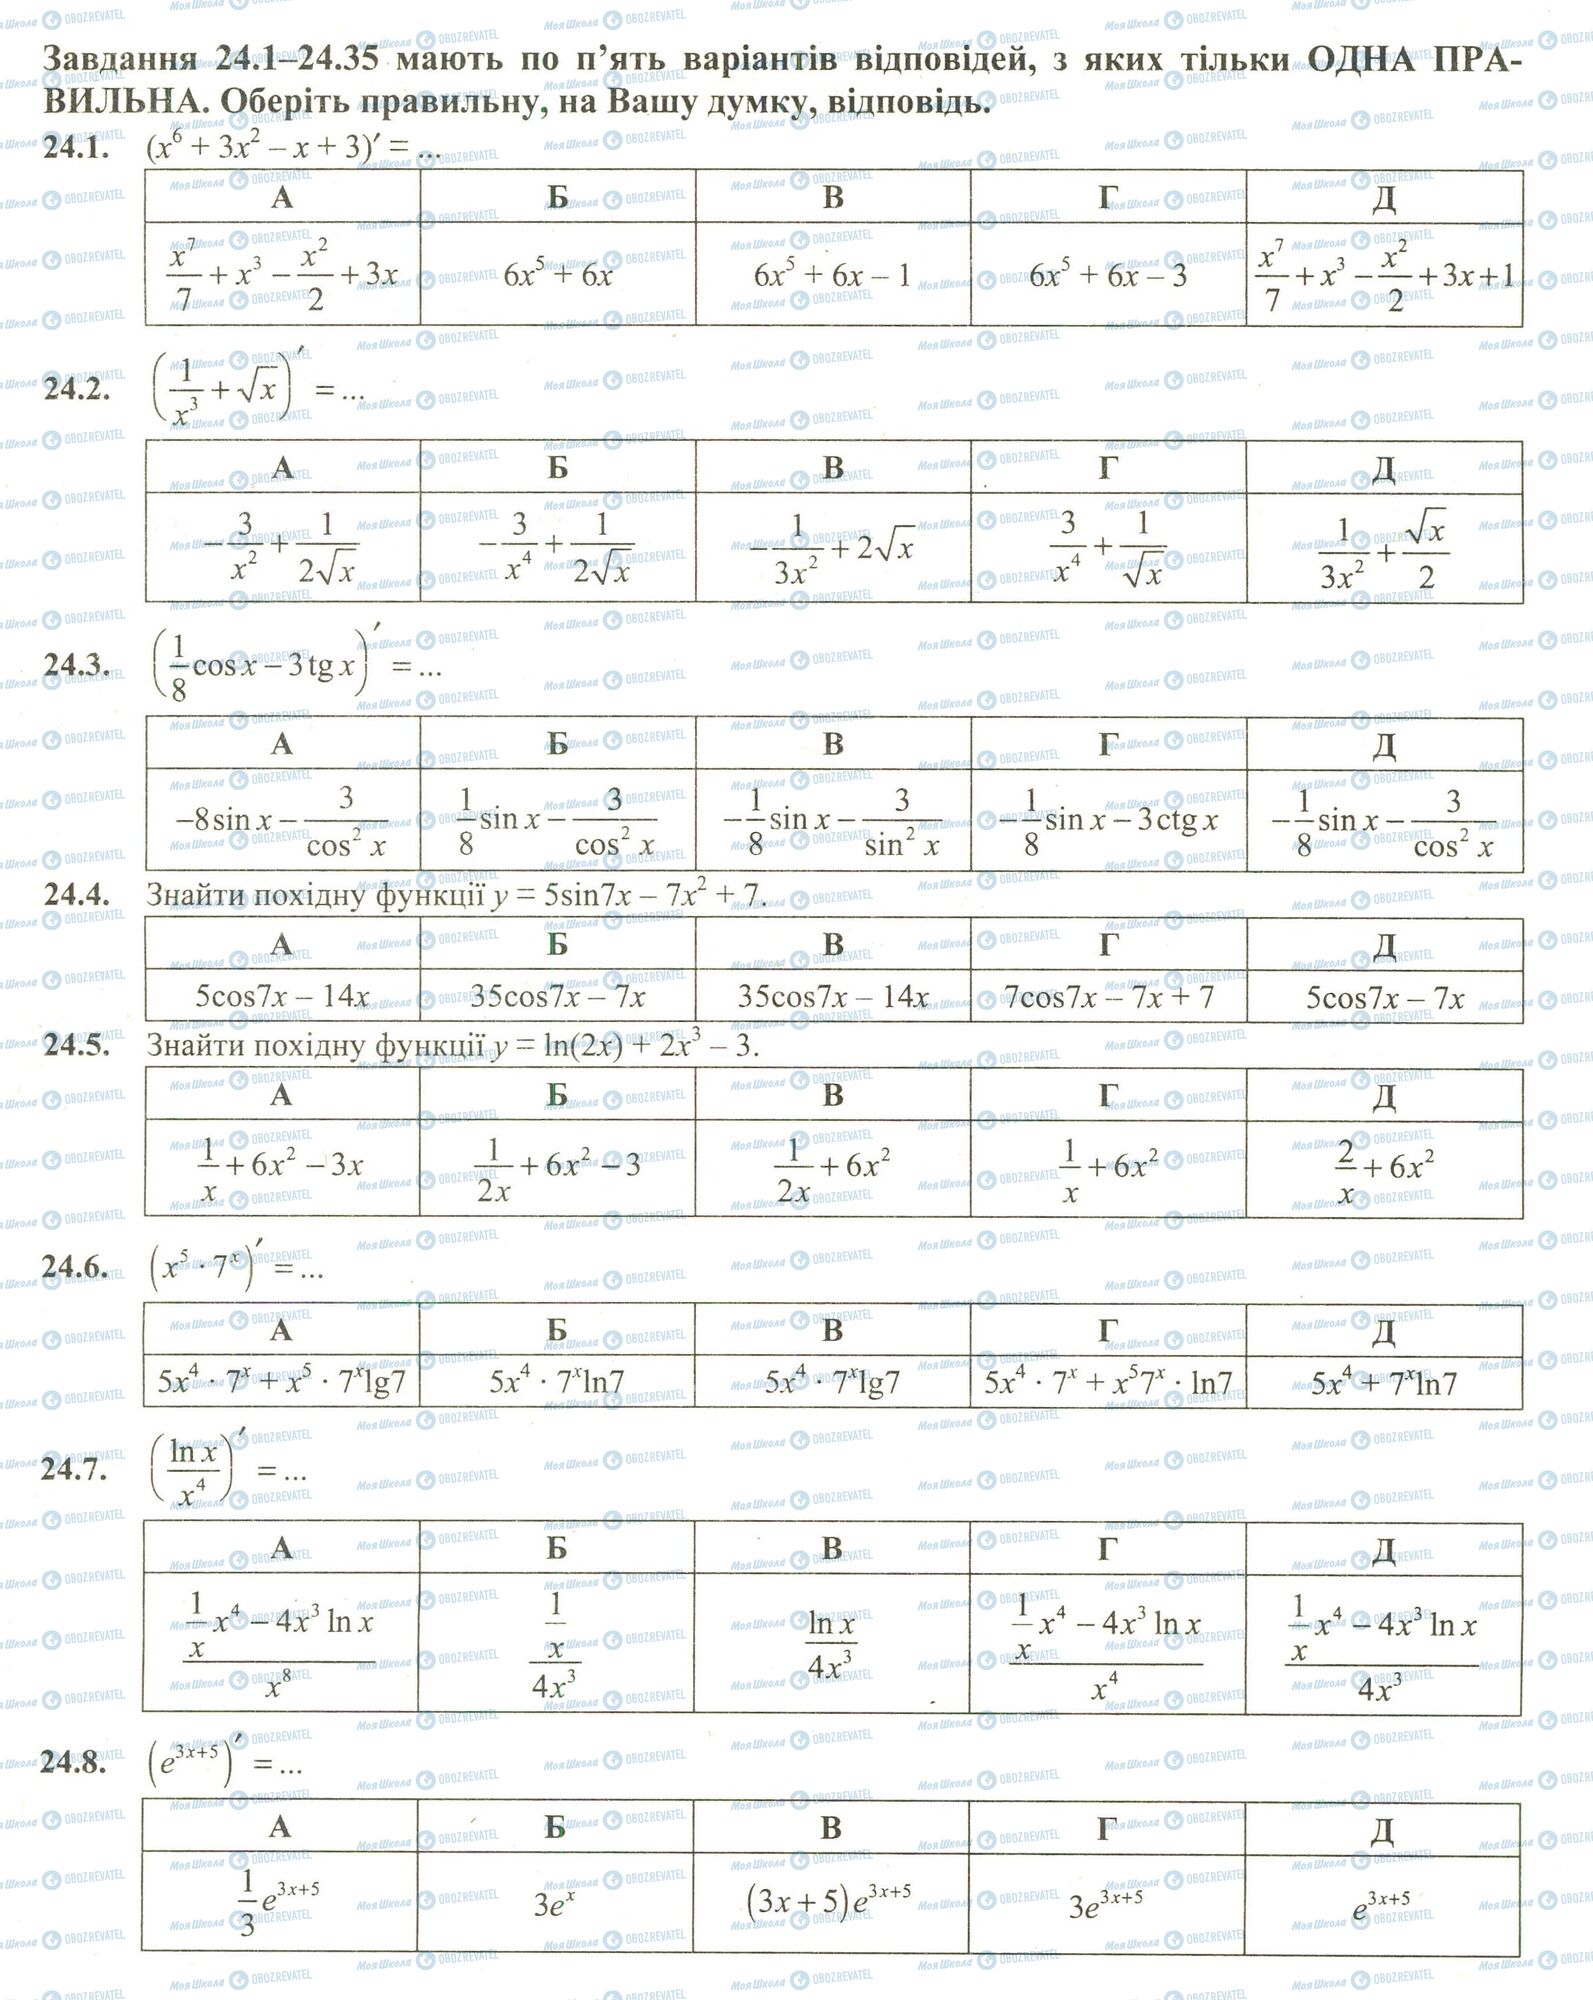 Завдання 24.1–24.35 мають по п’ять варіантів відповідей, з яких тільки ОДНА ПРА-
ВИЛЬНА. Оберіть правильну, на Вашу думку, відповідь.
24.1. (x⁶ + 3x² – x + 3)′ = ...
А Б В Г Д
x⁷/7 + x³ − x²/2 + 3x 6x⁵ + 6x 6x⁵ + 6x – 1 6x⁵ + 6x – 3 x⁷/7 + x³ − x²/2 + 3x + 1
24.2. (1/x³ + √x)′ = ...
А Б В Г Д
−3/x² + 1/(2√x) −3/x⁴ + 1/(2√x) −1/(3x²) + 2√x 3/x⁴ + 1/√x 1/(3x²) + √x/2
24.3. (1/8 cos x − 3 tg x)′ = ...
А Б В Г Д
−8 sin x − 3/cos² x 1/8 sin x − 3/cos² x −1/8 sin x − 3/sin² x −1/8 sin x − 3 ctg x −1/8 sin x − 3/cos² x
24.4. Знайти похідну функції y = 5sin7x – 7x² + 7.
А Б В Г Д
5cos7x – 14x 35cos7x – 7x 35cos7x – 14x 7cos7x – 7x + 7 5cos7x – 7x
24.5. Знайти похідну функції y = ln(2x) + 2x³ – 3.
А Б В Г Д
1/x + 6x² − 3x 1/(2x) + 6x² − 3 1/(2x) + 6x² 1/x + 6x² 2/x + 6x²
24.6. (x⁵ · 7ˣ)′ = ...
А Б В Г Д
5x⁴ · 7ˣ + x⁵ · 7ˣlg7 5x⁴ · 7ˣln7 5x⁴ · 7ˣlg7 5x⁴ · 7ˣ + x⁵7ˣ · ln7 5x⁴ + 7ˣln7
24.7. (ln x/x⁴)′ = ...
А Б В Г Д
(1/x x⁴ − 4x³ ln x)/x⁸ (1/x)/(4x³) ln x/(4x³) (1/x x⁴ − 4x³ ln x)/x⁴ (1/x x⁴ − 4x³ ln x)/(4x³)
24.8. (e³ˣ⁺⁵)′ = ...
А Б В Г Д
1/3 e³ˣ⁺⁵ 3eˣ (3x + 5)e³ˣ⁺⁵ 3e³ˣ⁺⁵ e³ˣ⁺⁵
МояШкола OBOZREVATEL